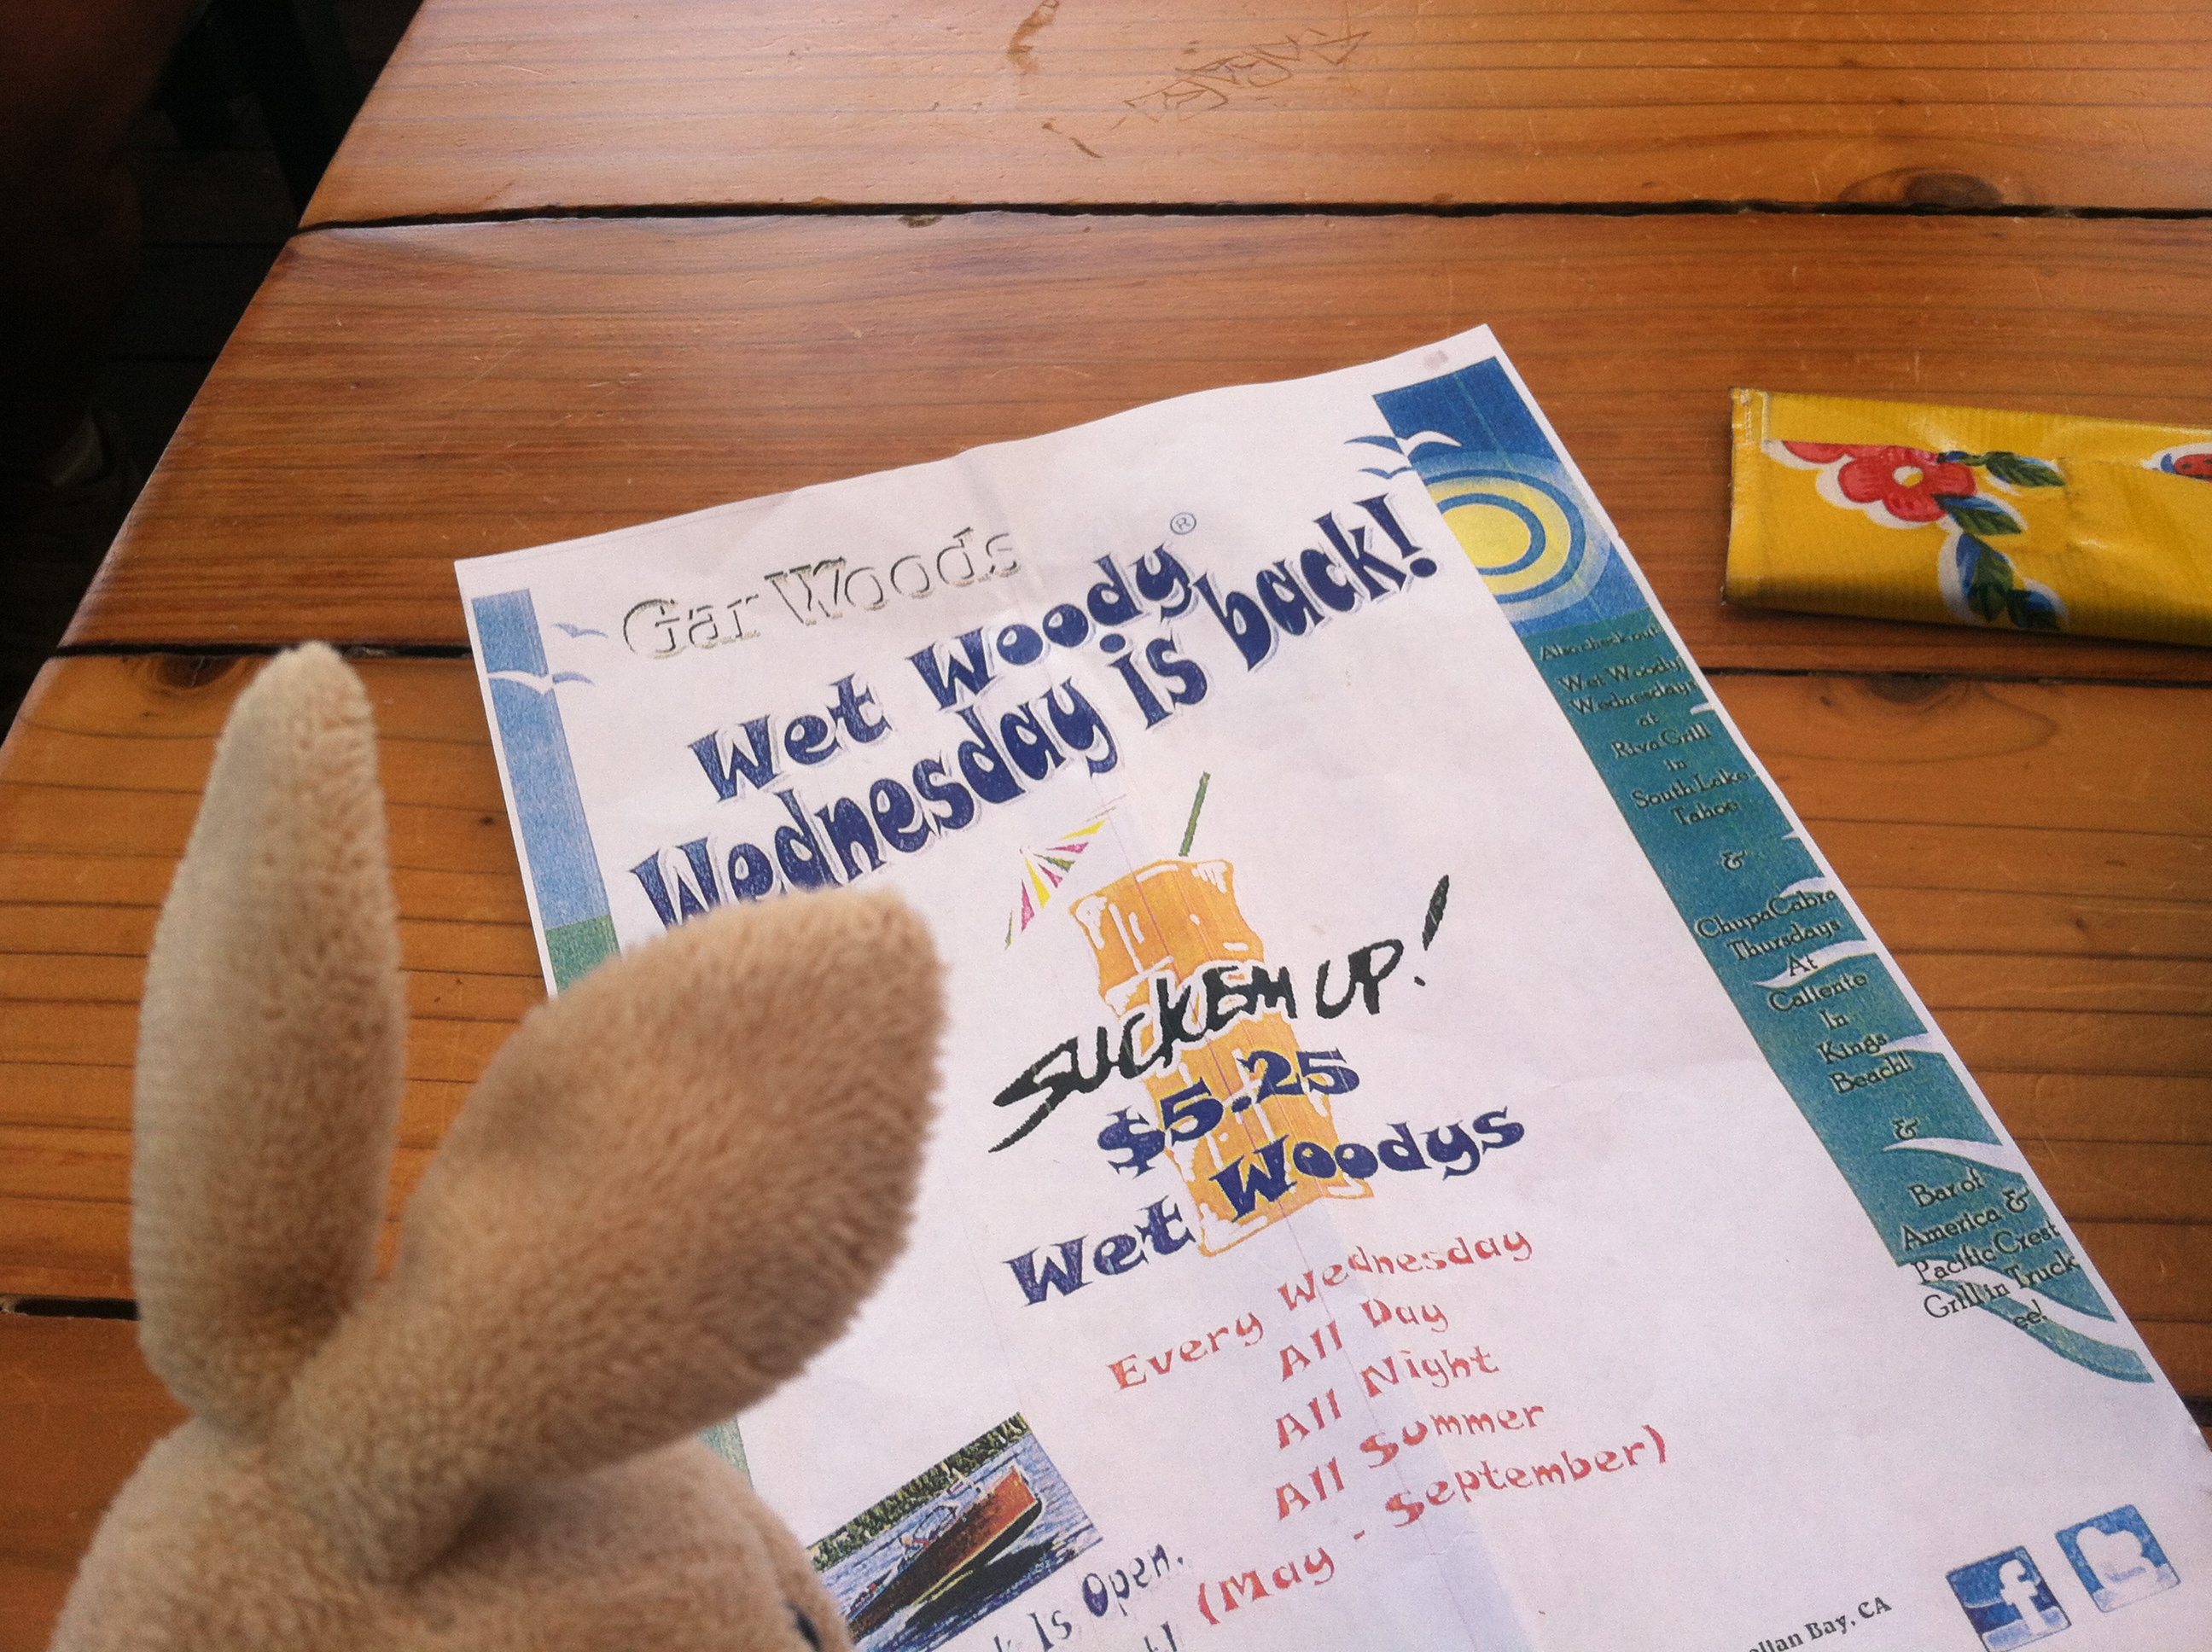 Gar Woods
Wet Woody®
Wednesday is back!
SUCKEM UP!
$5.25
Wet Woodys
Every Wednesday
All Day
All Night
All Summer
(May - September)
Is Open.
Bay, CA
f
Also check out:
Wet Woody
Wednesdays
at
Riva Grill
in
South Lake
Tahoe
&
ChupaCabra
Thursdays
At
Caliente
In
Kings
Beach!
&
Bar of
America &
Pacific Crest
Grill in Truck
ee!